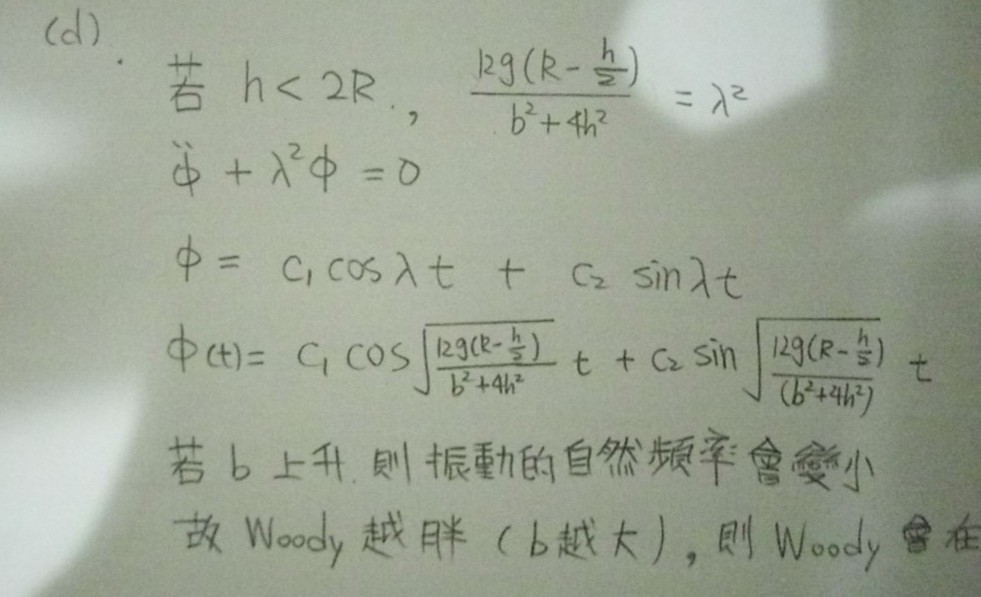 (d).
若 h < 2R., 12g(R-h/2) / b²+4h² = λ²
φ̈ + λ²φ = 0
φ = c₁ cos λt + c₂ sin λt
φ(t) = c₁ cos √(12g(R-h/2) / b²+4h²) t + c₂ sin √(12g(R-h/2) / (b²+4h²)) t
若 b 上升, 則振動的自然頻率會變小
故 Woody 越胖 (b越大), 則 Woody 會在